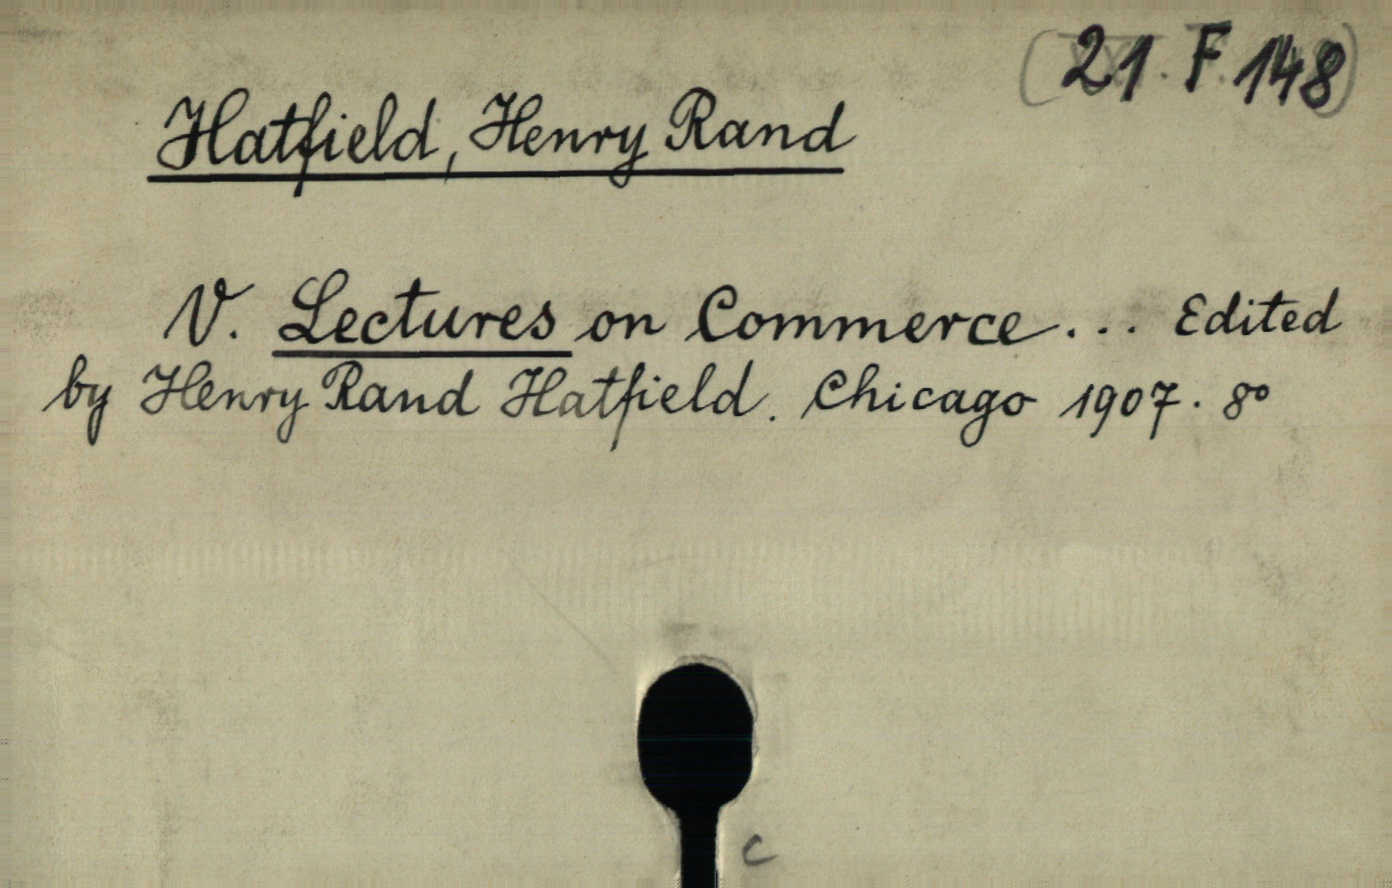 (21. F. 148)
Hatfield, Henry Rand
V. Lectures on Commerce... Edited
by Henry Rand Hatfield. Chicago 1907. 8º
c